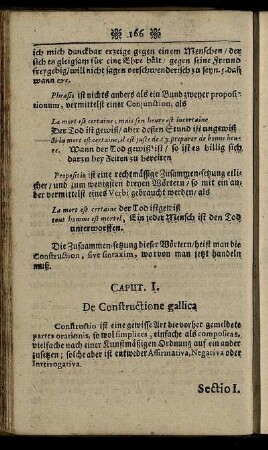 166
ich mich danckbar erzeige gegen einem Menschen / der
sich es gleichsam für eine Ehre hält / gegen seine Freund
freygebig / will nicht sagen verschwenderisch zu seyn ; daß
wann ere.
Phrasis ist nichts anders als ein Bund zweyer proposi-
tionum, vermittelst einer Conjunction, als
La mort est certaine, mais son heure est incertaine
Der Tod ist gewiß / aber dessen Stund ist ungewiß
Si la mort est certaine, il est juste de s'y preparer de bonne heu-
re. Wann der Tod gewiß ist / so ist es billig sich
darzu bey Zeiten zu bereiten
Propositio ist eine rechtmässige Zusammen-setzung etli-
cher / und zum wenigsten dreyen Wörtern / so mit ein an-
der vermittelst eines Verbi gebraucht werden / als
La mort est certaine der Tod ist gewiß
tout homme est mortel, Ein jeder Mensch ist den Tod
unterworffen.
Die Zusammen-setzung dieser Wörtern / heist man die
Construction, sive sintaxim, worvon man jetzt handeln
muß.
CAPUT. I.
De Constructione gallica
Constructio ist eine gewisse Art die vorher gemeldete
partes orationis, so wol simplices, einfache als compositas,
vielfache nach einer Kunstmäßigen Ordnung auf ein ander
zusetzen ; solche aber ist entweder Affirmativa, Negativa oder
Interrogativa.
Sectio I.